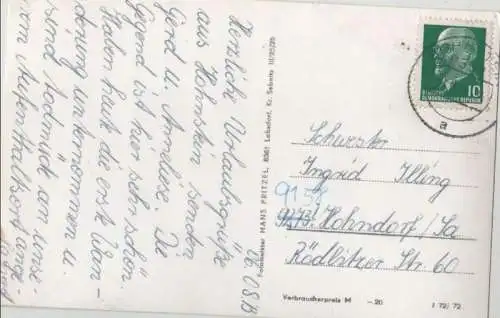 06.08.73
Herzliche Urlaubsgrüße
aus Hohnstein senden
Gerd u. Annliese. Die
Gegend ist hier sehr schön.
Haben heute die erste Wan-
derung unternommen u.
sind todmüde an unse-
rem Aufenthaltsort ange-
Fotomeister HANS FRITZEL, 8361 Lobsdorf, Kr. Sebnitz III/25/25
10
DEUTSCHE
DEMOKRATISCHE REPUBLIK
a
Schwester
Ingrid Illing
9158
9273 Hohndorf/Sa
Rödlitzer Str. 60
Verbraucherpreis M -.20
I 72/72